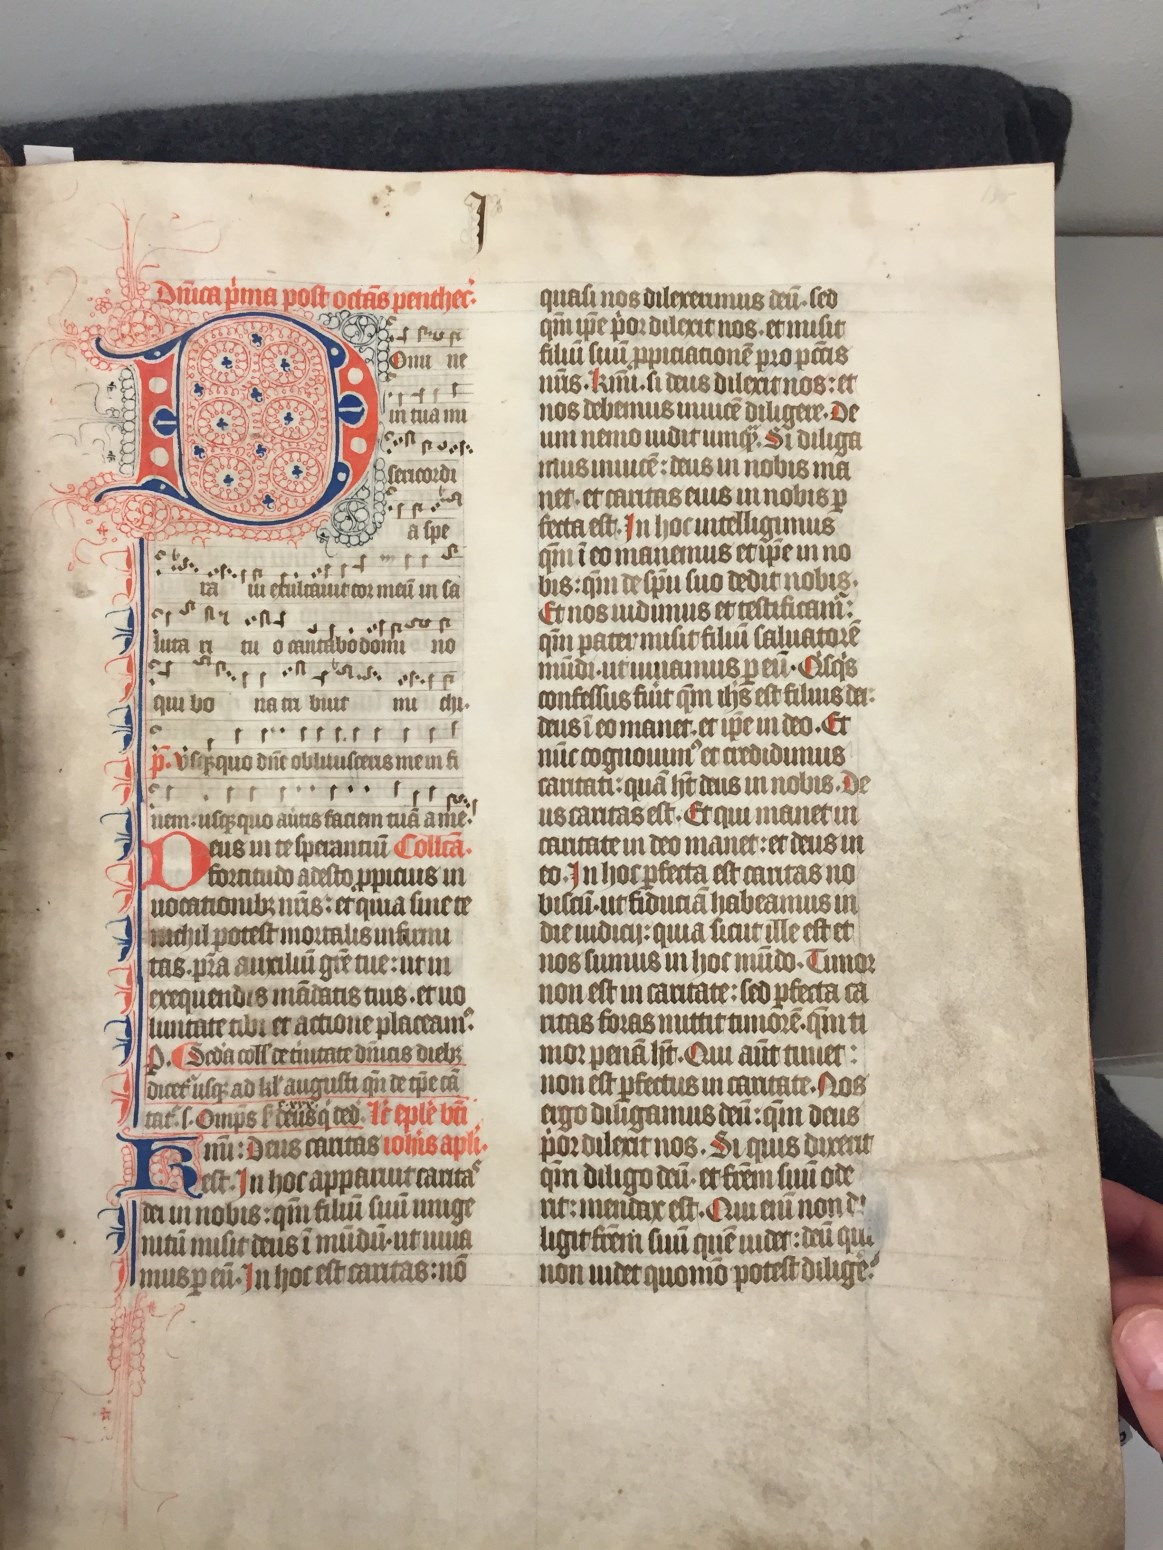 Dn̄ica p̄ma post octa̅s penthec̄.
Omi ne
in tua mi
sericordi
a spe
ra ui exultauit cor meū in sa
luta ri tu o cantabo domi no
qui bo na tri buit mi chi.
p̄. Vsq̨quo dn̄e obliuisceris me in fi
nem: usq̨quo au̅tis faciem tuā a me.
Deus in te sperantiū Collcā.
fortitudo adesto ꝓpicius in
uocationibꝫ nr̄is: et quia sine te
nichil potest mortalis infirmi
tas. pr̄a auxiliū gr̄e tue: ut in
exequendis mādatis tuis. et uo
luntate tibi et actione placeamꝰ.
p̄. Scd̄a coll̄ de t̄nitate dn̄icis diebꝫ
dicet᷑ usq̨ ad kl̄ augusti qn̄ de tp̄e cā
tat᷑. s. Omp̄s s̄ deus q̄ ced. Lc̄ ep̄le bt̄i
Km̄i: Deus caritas ioh̄is apl̄i.
est. In hoc apparuit caritas
dei in nobis: qm̄ filiū suū unige
nitū misit deus ī mūdū. ut uiua
mus ꝑ eū. In hoc est caritas: nō
quasi nos dilexerimus deū. sed
qm̄ ip̄e p̄or dilexit nos. et misit
filiū suū ꝓpiciationē pro pc̄tis
nr̄is. Km̄i. si deus dilexit nos: et
nos debemus inuicē diligere. De
um nemo uidit umq̄. Si diliga
mus inuicē: deus in nobis ma
net. et caritas eius in nobis ꝑ
fecta est. In hoc intelligimus
qm̄ ī eo manemus et ip̄e in no
bis: qm̄ de sp̄u suo dedit nobis.
Et nos uidimus et testificam᷑:
qm̄ pater misit filiū saluatorē
mūdi. ut uiuamus ꝑ eū. Qisq̄s
confessus fiūt qm̄ ih̄s est filius dei:
deus ī eo manet. et ip̄e in deo. Et
nūc cognouimꝰ et credidimus
caritati: quā h̄t deus in nobis. De
us caritas est. Et qui manet in
caritate in deo manet: et deus in
eo. In hoc ꝑfecta est caritas no
biscū. ut fiduciā habeamus in
die iudicij: quia sicut ille est et
nos sumus in hoc mūdo. Timor
non est in caritate: sed ꝑfecta ca
ritas foras mittit timorē. qm̄ ti
mor penā h̄t. Qui aūt timet:
non est ꝑfectus in caritate. Nos
ergo diligamus deū: qm̄ deus
p̄or dilexit nos. Si quis dixerit
qm̄ diligo deū. et fr̄em suū ode
rit: mendax est. Qui eīm non di
ligit fr̄em suū quē uidet: deū quē
non uidet quomō potest diligē᷑.